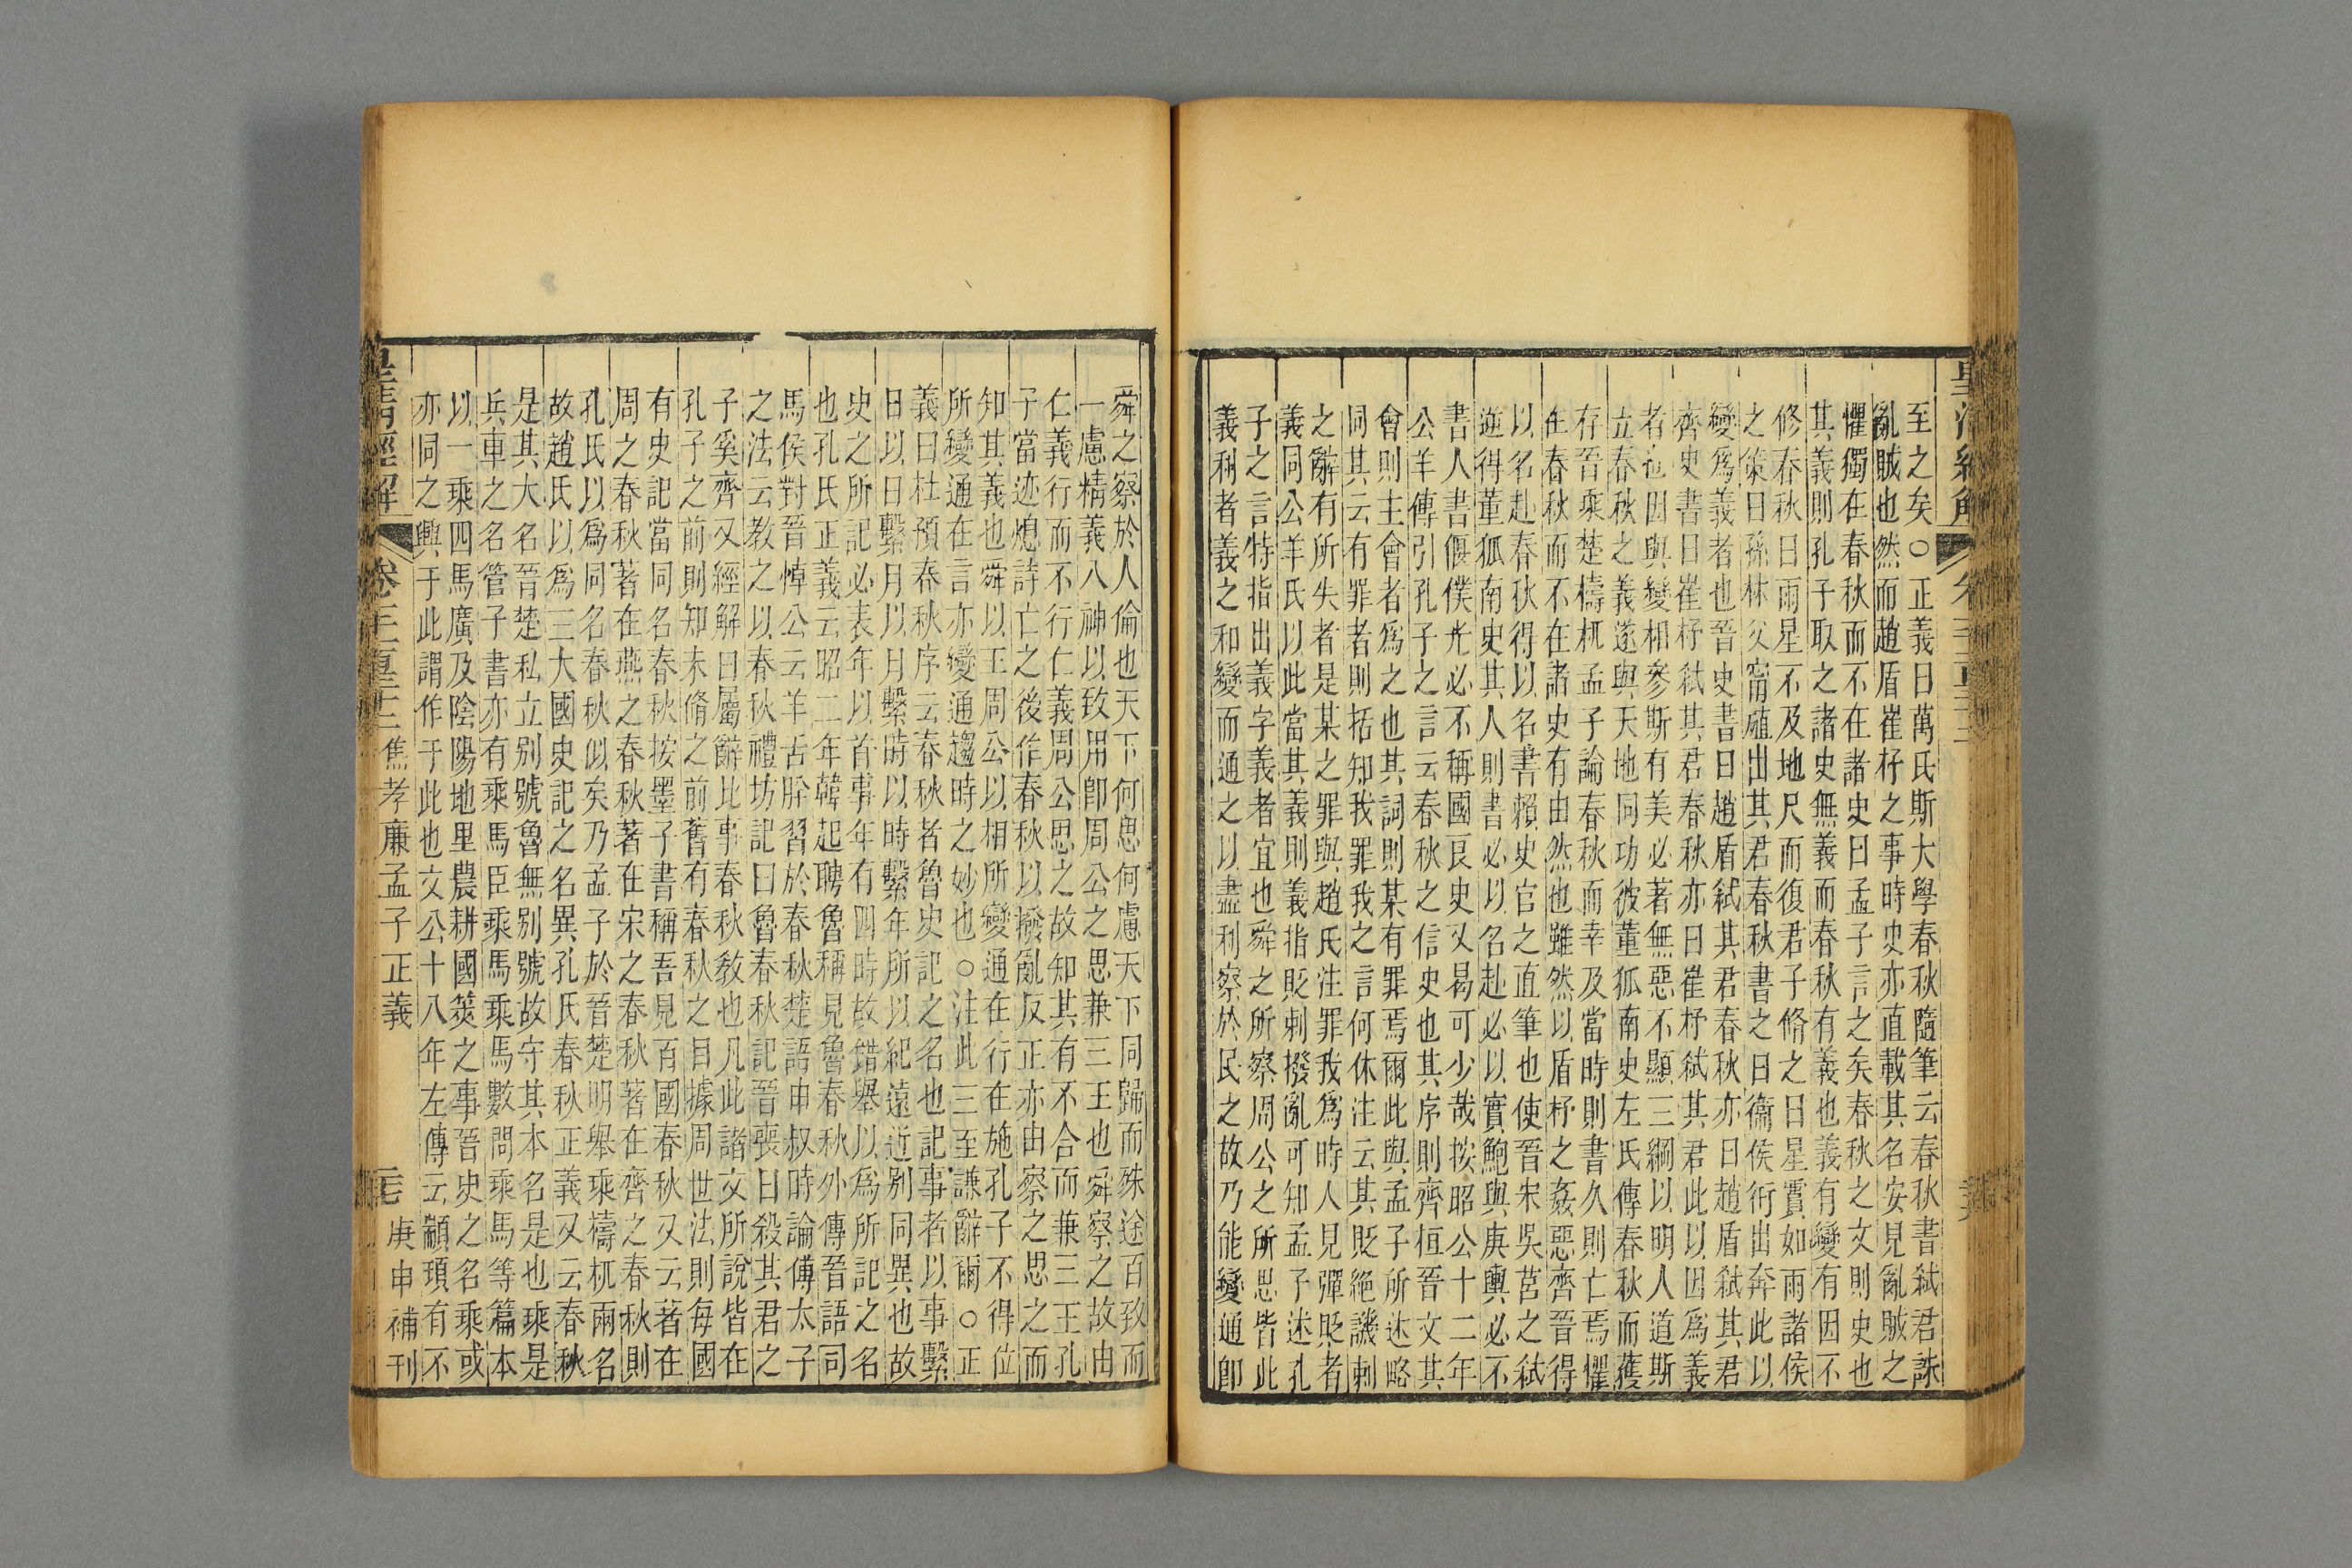 至之矣○正義曰萬氏斯大學春秋隨筆云春秋書弒君誅
亂賊也然而趙盾崔杼之事時史亦直載其名安見亂賊之
懼獨在春秋而不在諸史曰孟子言之矣春秋之文則史也
其義則孔子取之諸史無義而春秋有義也義有變有因不
修春秋曰雨星不及地尺而復君子脩之曰星霣如雨諸侯
之策曰孫林父甯殖出其君春秋書之曰衞侯衎出奔此以
變爲義者也晉史書曰趙盾弒其君春秋亦曰趙盾弒其君
齊史書曰崔杼弒其君春秋亦曰崔杼弒其君此以因爲義
者也因與變相參斯有美必著無惡不顯三綱以明人道斯
立春秋之義遂與天地同功彼董狐南史左氏傳春秋而獲
存吾乘楚檮杌孟子論春秋而幸及當時則書久則亡焉懼
在春秋而不在諸史有由然也雖然以盾杼之姦惡齊晉得
以名赴春秋得以名書賴史官之直筆也使晉宋吳莒之弒
逆得董狐南史其人則書必以名赴必以實鮑與庚輿必不
書人書僕光必不稱國良史又曷可少哉按昭公十二年
公羊傳引孔子之言云春秋之信史也其序則齊桓晉文其
會則主會者爲之也其詞則某有罪焉爾此與孟子所述略
同其云有罪者則括知我罪我之言何休注云其貶絶譏刺
之辭有所失者是某之罪與趙氏注罪我爲時人見彈貶者
義同公羊氏以此當其義則義指貶刺撥亂可知孟子述孔
子之言特指出義字義者宜也舜之所察周公之所思皆此
義利者義之和變而通之以盡利察於民之故乃能變通卽
舜之察於人倫也天下何思何慮天下同歸而殊途百致而
一慮精義入神以致用卽周公之思兼三王也舜察之故由
仁義行而不行仁義周公思之故知其有不合而兼三王孔
子當迹熄詩亡之後作春秋以撥亂反正亦由察之思之而
知其義也舜以王周公以相所變通在行在施孔子不得位
所變通在言亦變通趨時之妙也○注此三至謙辭爾○正
義曰杜預春秋序云春秋者魯史記之名也記事者以事繫
日以日繫月以月繫時以時繫年所以紀遠近別同異也故
史之所記必表年以首事年有四時故錯舉以爲所記之名
也孔氏正義云昭二年韓起聘魯稱見魯春秋外傳晉語司
馬侯對晉悼公云羊舌肸習於春秋楚語申叔時論傅太子
之法云教之以春秋禮坊記曰魯春秋記晉喪曰殺其君之
子奚齊又經解曰屬辭比事春秋教也凡此諸文所說皆在
孔子之前則知未脩之前舊有春秋之目據周世法則每國
有史記當同名春秋按墨子書稱吾見百國春秋又云著在
周之春秋著在燕之春秋著在宋之春秋著在齊之春秋則
孔氏以爲同名春秋似矣乃孟子於晉楚明舉乘檮杌兩名
故趙氏以爲三大國史記之名異孔氏春秋正義又云春秋
是其大名晉楚私立別號魯無別號故守其本名是也乘是
兵車之名管子書亦有乘馬臣乘馬乘馬數問乘馬等篇本
以一乘四馬廣及陰陽地里農耕國筴之事晉史之名乘或
亦同之興于此謂作于此也文公十八年左傳云顓頊有不
皇淸經解 卷二 焦孝廉孟子正義 庚申補刊